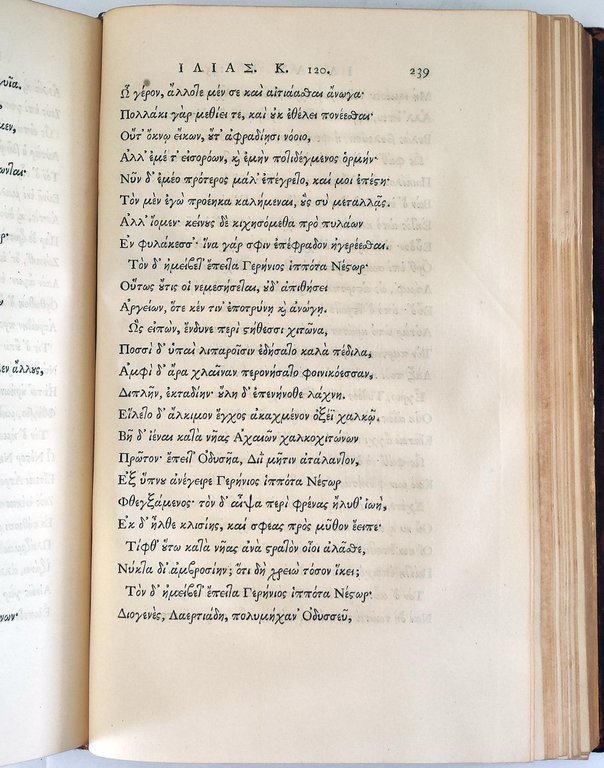 υῖα.
ων,
ωνlαι·
ρ·
εν ἄλλυς,
ωνων·
ΙΛΙΑΣ. Κ. 120. 239
Ὦ γέρον, ἄλλοlε μέν σε καὶ αἰτιάασθαι ἄνωγα·
Πολλάκι γὰρ μεθίει τε, καὶ ουκ ἐθέλει πονέεσθαι·
Οὔτ᾽ ὄκνῳ εἴκων, ὔτ᾽ ἀφραδίησι νόοιο,
Αλλ᾽ ἐμέ τ᾽ εἰσορόων, ϗ ἐμὴν ποlιδέγμενος ὁρμήν·
Νῦν δ᾽ ἐμέο πρότερος μάλ᾽ ἐπέγρεlο, καί μοι ἐπέϛη·
Τὸν μὲν ἐγὼ προέηκα καλήμεναι, ὓς σὺ μεταλλᾷς.
Αλλ᾽ ἴομεν· κείνυς δὲ κιχησόμεθα πρὸ πυλάων
Εν φυλάκεσσ᾽· ἵνα γάρ σφιν ἐπέφραδον ἠγερέεσθαι.
Τὸν δ᾽ ἠμείβεl᾽ ἔπειlα Γερήνιος ἱππότα Νέϛωρ·
Οὕτως ὔτις οἱ νεμεσήσεlαι, ὐδ᾽ ἀπιθήσει
Αργείων, ὅτε κέν τιν᾽ ἐποτρύνῃ ϗ ἀνώγῃ.
Ὣς εἰπὼν, ἔνδυνε περὶ ϛήθεσσι χιτῶνα,
Ποσσὶ δ᾽ ὑπαὶ λιπαροῖσιν ἐδήσαlο καλὰ πέδιλα,
Αμφὶ δ᾽ ἄρα χλαῖναν περονήσαlο φοινικόεσσαν,
Διπλῆν, ἐκταδίην· ὔλη δ᾽ ἐπενήνοθε λάχνη.
Εἵλεlο δ᾽ ἄλκιμον ἔγχος ἀκαχμένον ὀξέϊ χαλκῷ.
Βῆ δ᾽ ἰέναι καlὰ νῆας Αχαιῶν χαλκοχιτώνων
Πρῶτον· ἔπειl᾽ Οδυσῆα, Διῒ μῆτιν ἀτάλανlον,
Εξ ὕπνυ ἀνέγειρε Γερήνιος ἱππότα Νέϛωρ
Φθεγξάμενος· τὸν δ᾽ αἶψα περὶ φρένας ἤλυθ᾽ ἰωὴ,
Εκ δ᾽ ἦλθε κλισίης, καί σφεας πρὸς μῦθον ἔειπε·
Τίφθ᾽ ὕτω καlὰ νῆας ἀνὰ ϛραlὸν οἶοι ἀλᾶσθε,
Νύκlα δι᾽ ἀμβροσίην; ὅτι δὴ χρειὼ τόσον ἵκει;
Τὸν δ᾽ ἠμείβεl᾽ ἔπειlα Γερήνιος ἱππότα Νέϛωρ·
Διογενὲς, Λαερτιάδη, πολυμήχαν᾽ Οδυσσεῦ,